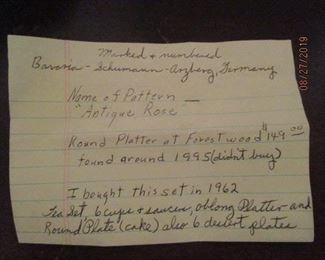 Marked & numbered
Bavaria - Schumann - Arzberg, Germany
Name of Pattern —
"Antique Rose
Round Platter at Forestwood $149.00
found around 1995 (didn't buy)
I bought this set in 1962
Tea Set, 6 cups & saucers, oblong Platter and
Round Plate (cake) also 6 desert plates
08/27/2019